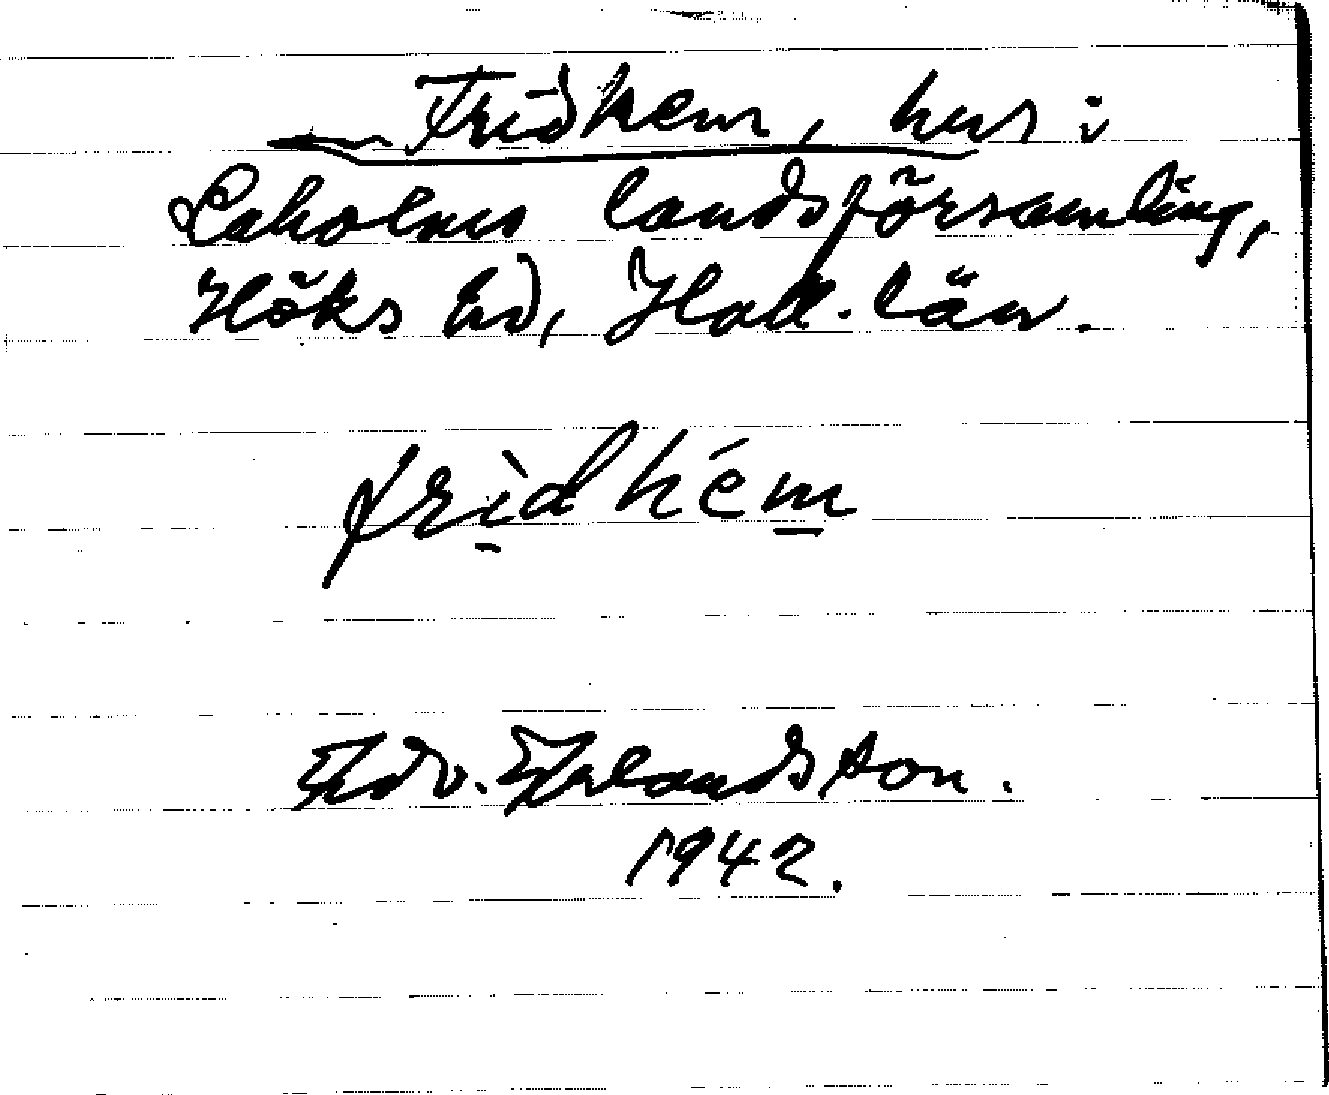 Fridhem, hus i
Laholms landsförsamling,
Höks hd, Hall. län.
fri̱dhém̱
Edv. Erlandsson.
1942.